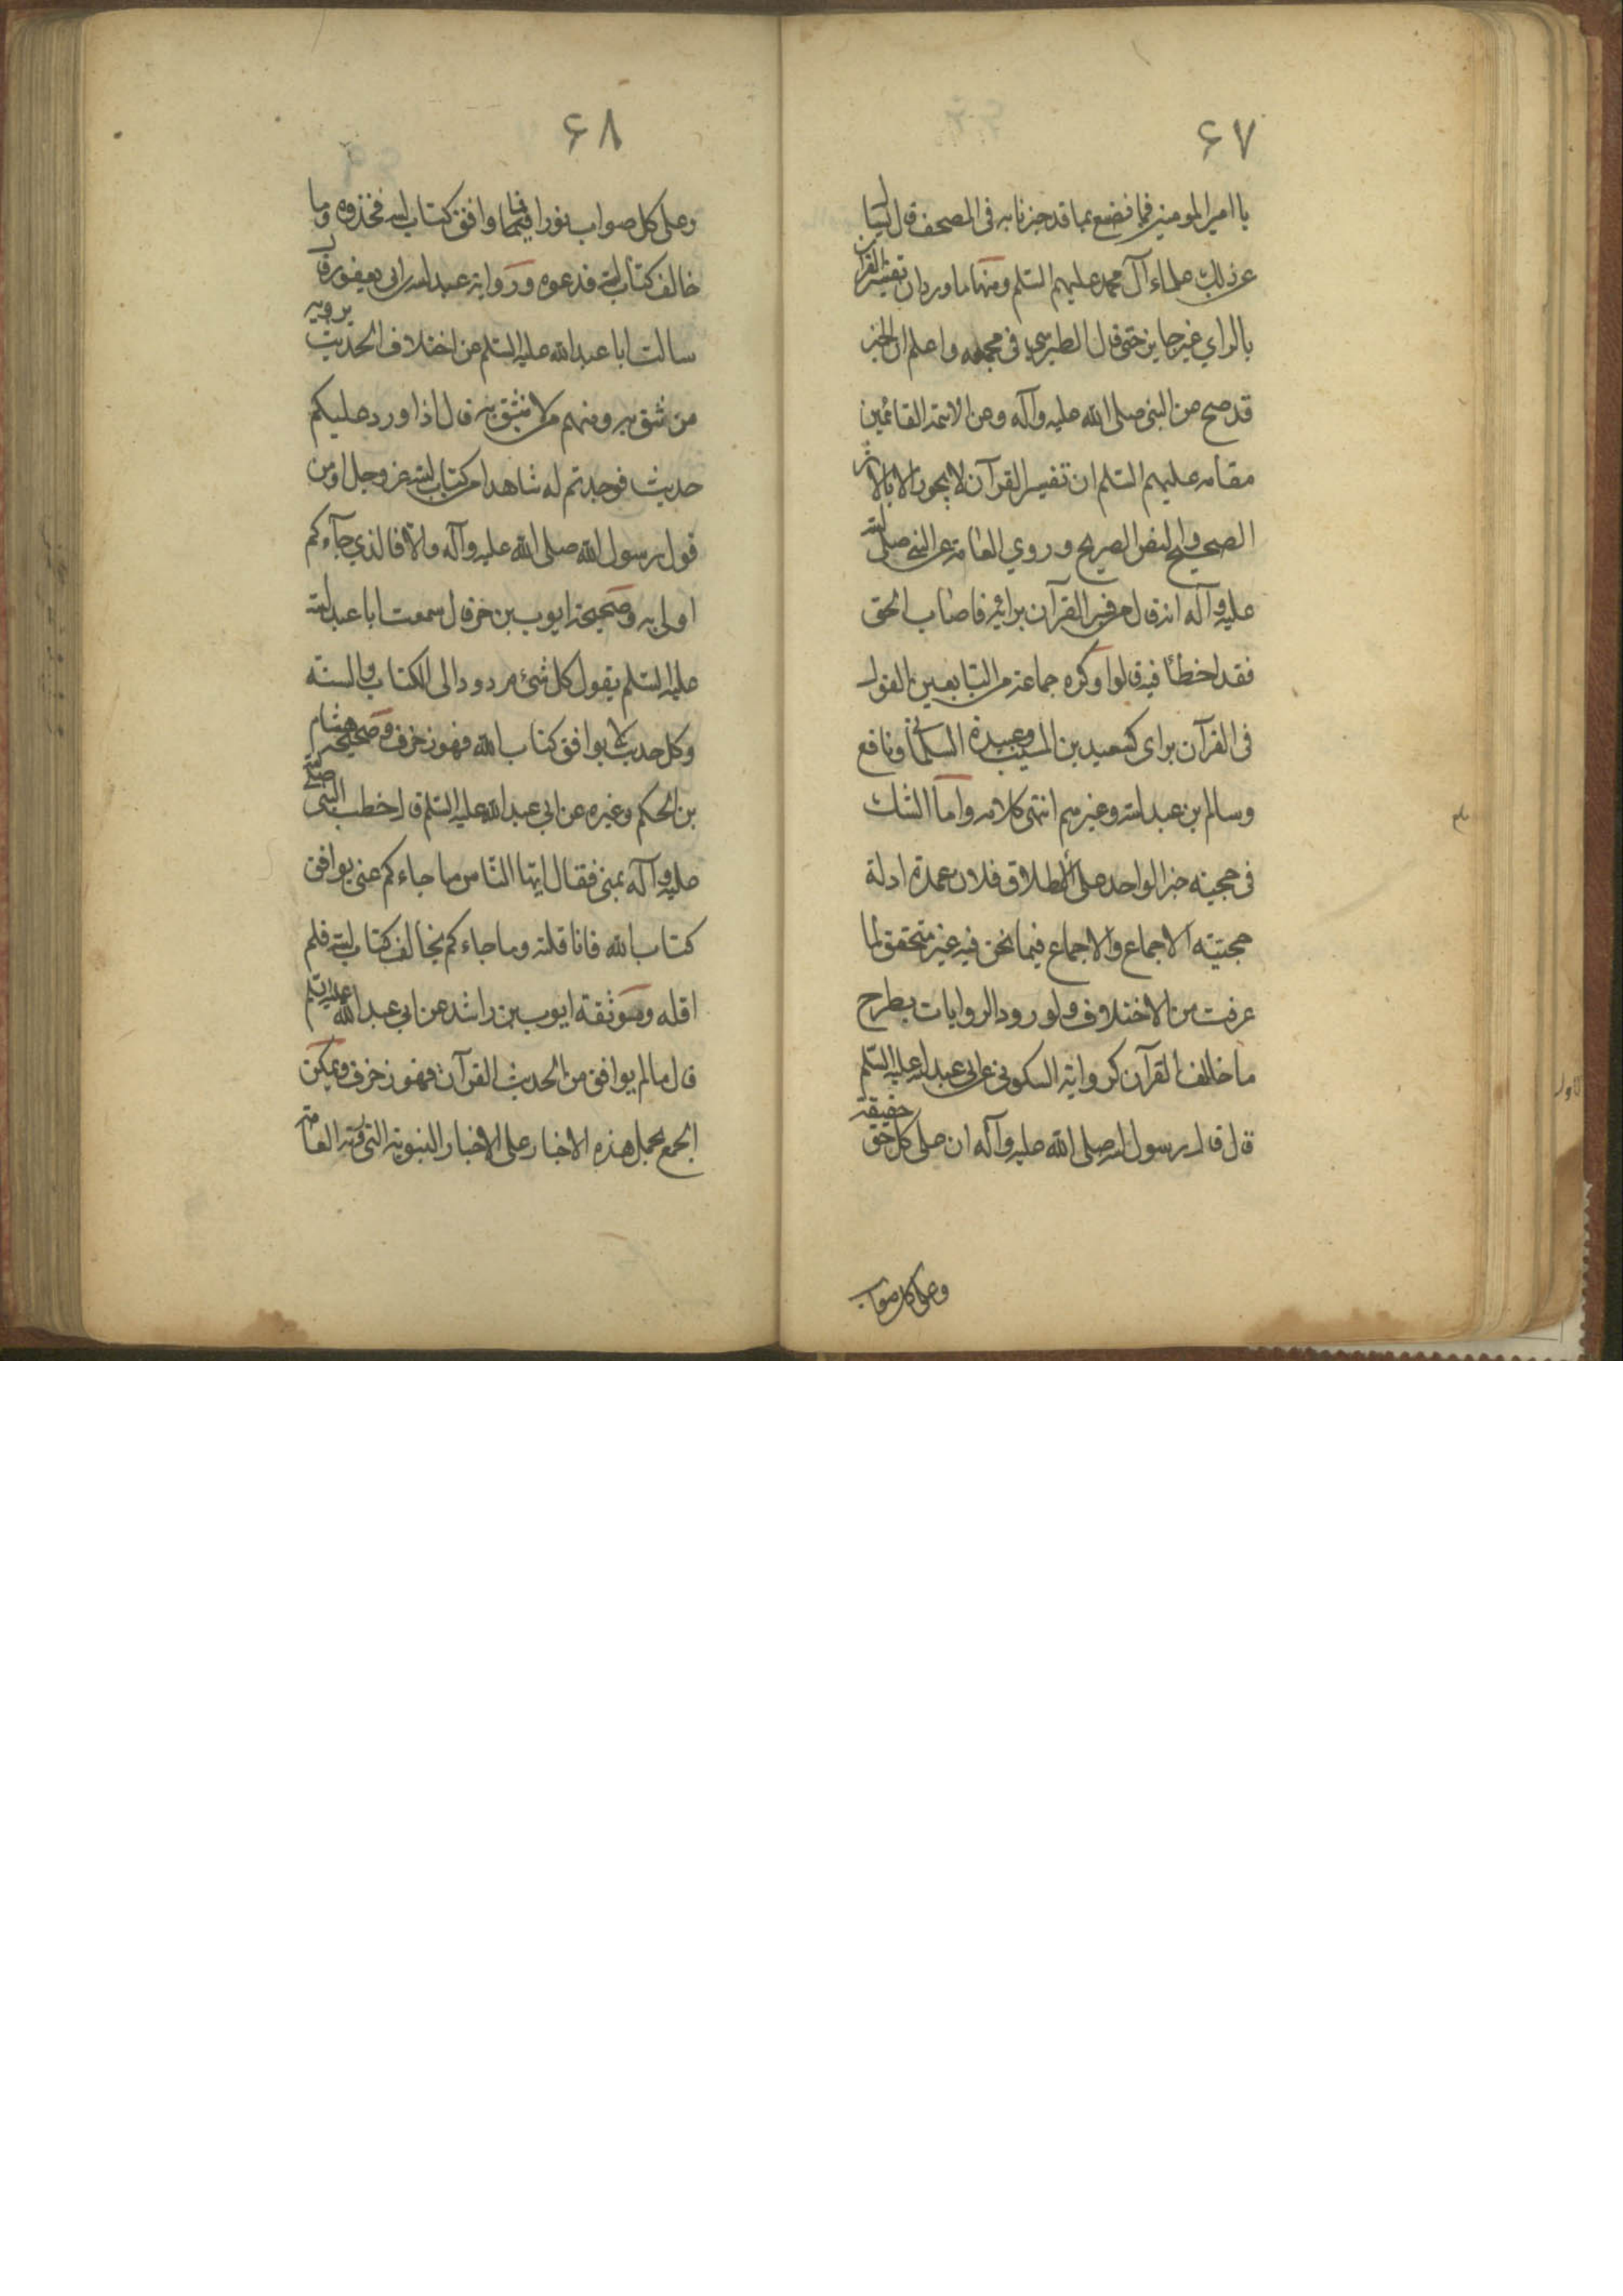 ۶۷
يا امير المومنين فما نصنع بما قد خبرنا به في المصحف قال ليسئل
عن ذلك علماء آل محمد عليهم السلم ومنها ما ورد ان تفسير القرآن
بالراي غير جايز حتى قال الطبرسي في مجمعه واعلم ان الخبر
قد صح عن النبي صلى الله عليه وآله وعن الائمة القائمين
مقامه عليهم السلم ان تفسير القرآن لا يجوز الا بالاثر
الصحيح والنص الصريح وروي العامة عن النبي صلى الله
عليه وآله انه قال من فسر القرآن برائه فاصاب الحق
فقد اخطأ فيه قالوا وكره جماعة من التابعين القول
في القرآن براي كسعيد بن المسيب وعبيدة السلماني ونافع
وسالم بن عبد الله وغيرهم انتهى كلامه واما الشك
في حجيته خبر الواحد على الاطلاق فلان عمدة ادلة
حجيته الاجماع والاجماع فيما نحن فيه غير متحقق لما
عرفت من الاختلاف ولورود الروايات بطرح
ما خالف القرآن كرواية السكوني عن ابي عبد الله عليه السلم
قال قال رسول الله صلى الله عليه وآله ان على كل حق حقيقة
وعلى كل صواب
۶۸
وعلى كل صواب نورا فما وافق كتاب الله فخذوه وما
خالف كتاب الله فدعوه ورواية عبد الله بن ابي يعفور قال
سالت ابا عبد الله عليه السلم عن اختلاف الحديث يرويه
من نثق به ومنهم من لا نثق به قال اذا ورد عليكم
حديث فوجدتم له شاهدا من كتاب الله عز وجل او من
قول رسول الله صلى الله عليه وآله والا فالذي جآءكم
اولى به وصحيحة ايوب بن حر قال سمعت ابا عبد الله
عليه السلم يقول كل شئ مردود الى الكتاب والسنة
وكل حديث لا يوافق كتاب الله فهو زخرف وصحيحة هشام
بن الحكم وغيره عن ابي عبد الله عليه السلم قال خطب النبي صلى الله
عليه وآله بمنى فقال ايها الناس ما جاءكم عني يوافق
كتاب الله فانا قلته وما جاءكم يخالف كتاب الله فلم
اقله وموثقة ايوب بن راشد عن ابي عبد الله عليه السلم
قال ما لم يوافق من الحديث القرآن فهو زخرف ويمكن
الجمع بحمل هذه الاخبار على الاخبار النبوية التي روته العامة